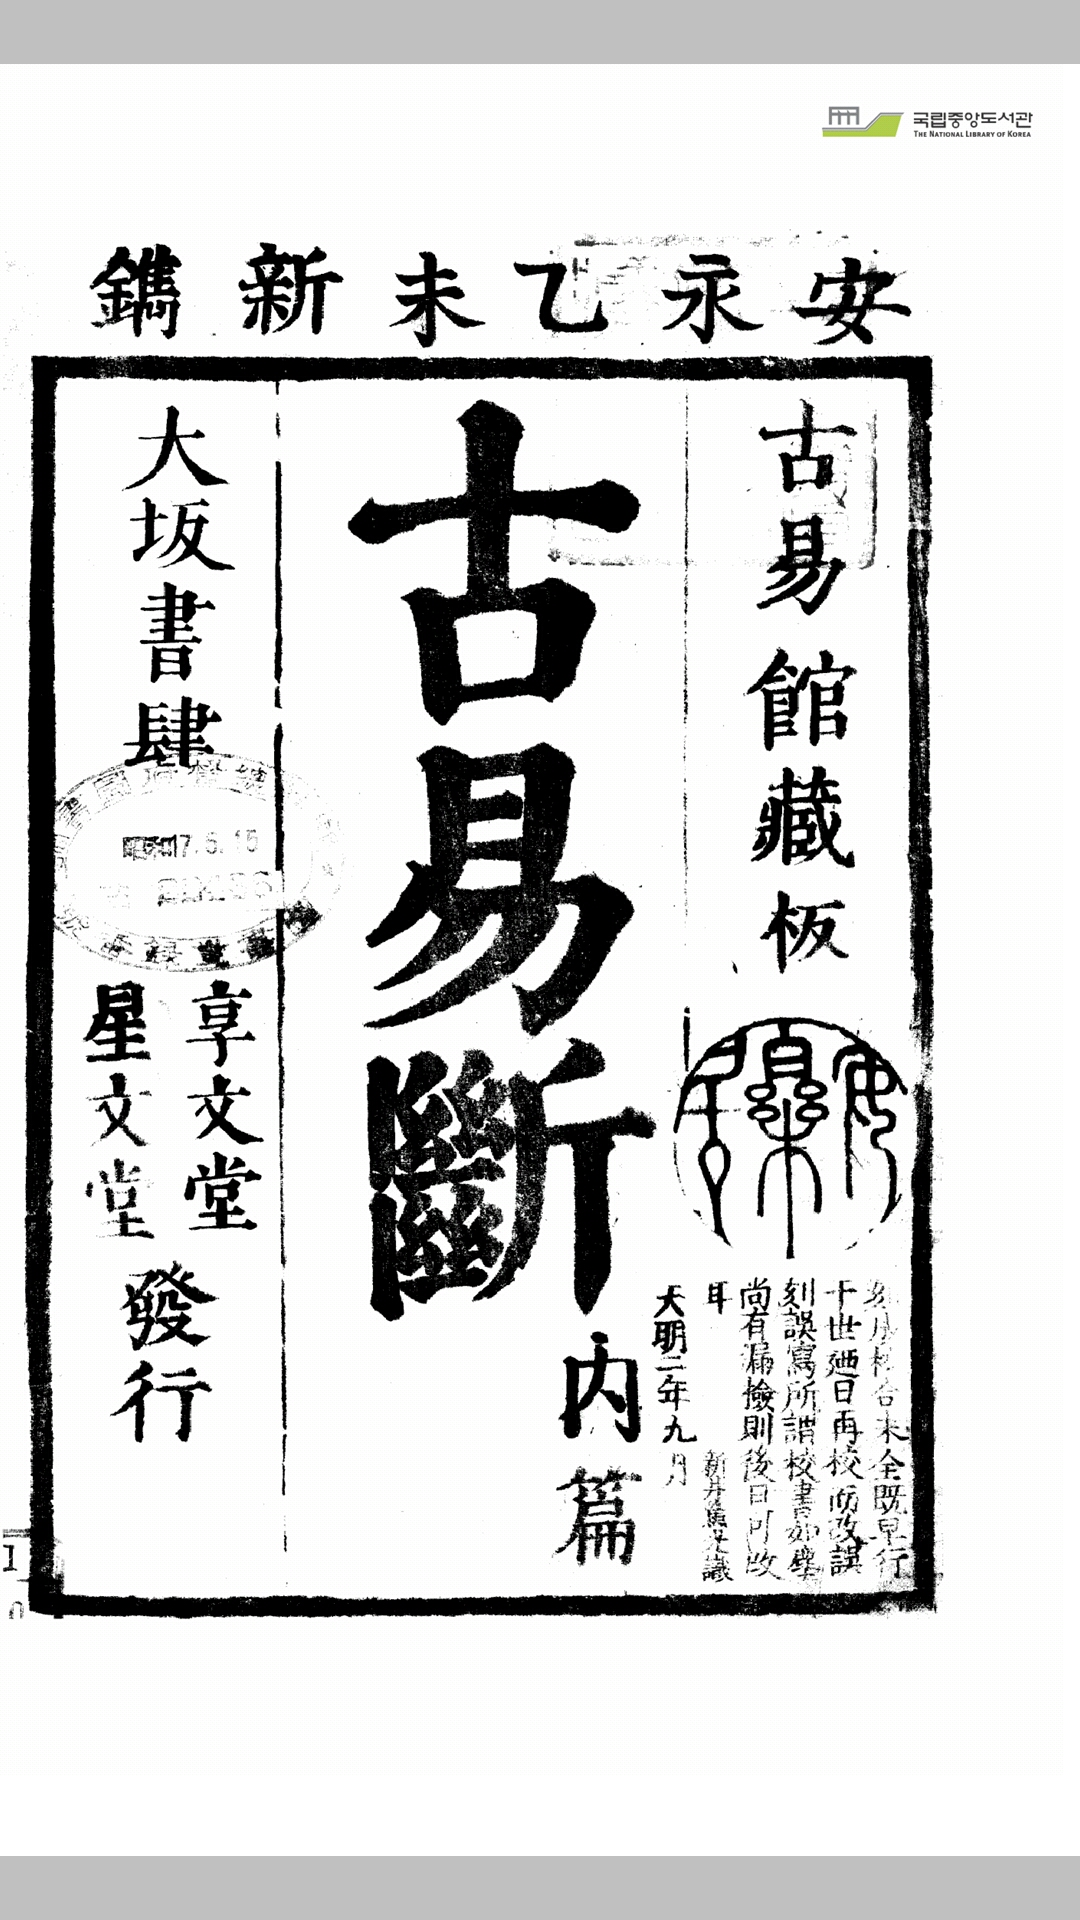 국립중앙도서관
THE NATIONAL LIBRARY OF KOREA
安永乙未新鐫
古易館藏板
古易斷
内篇
全既早行
十世廼日再校而改誤
刻誤寫所謂校書如塵
尚有漏撿則後日可改
耳
天明二年九月
大坂書肆
享文堂
星文堂
發行
17.6.15